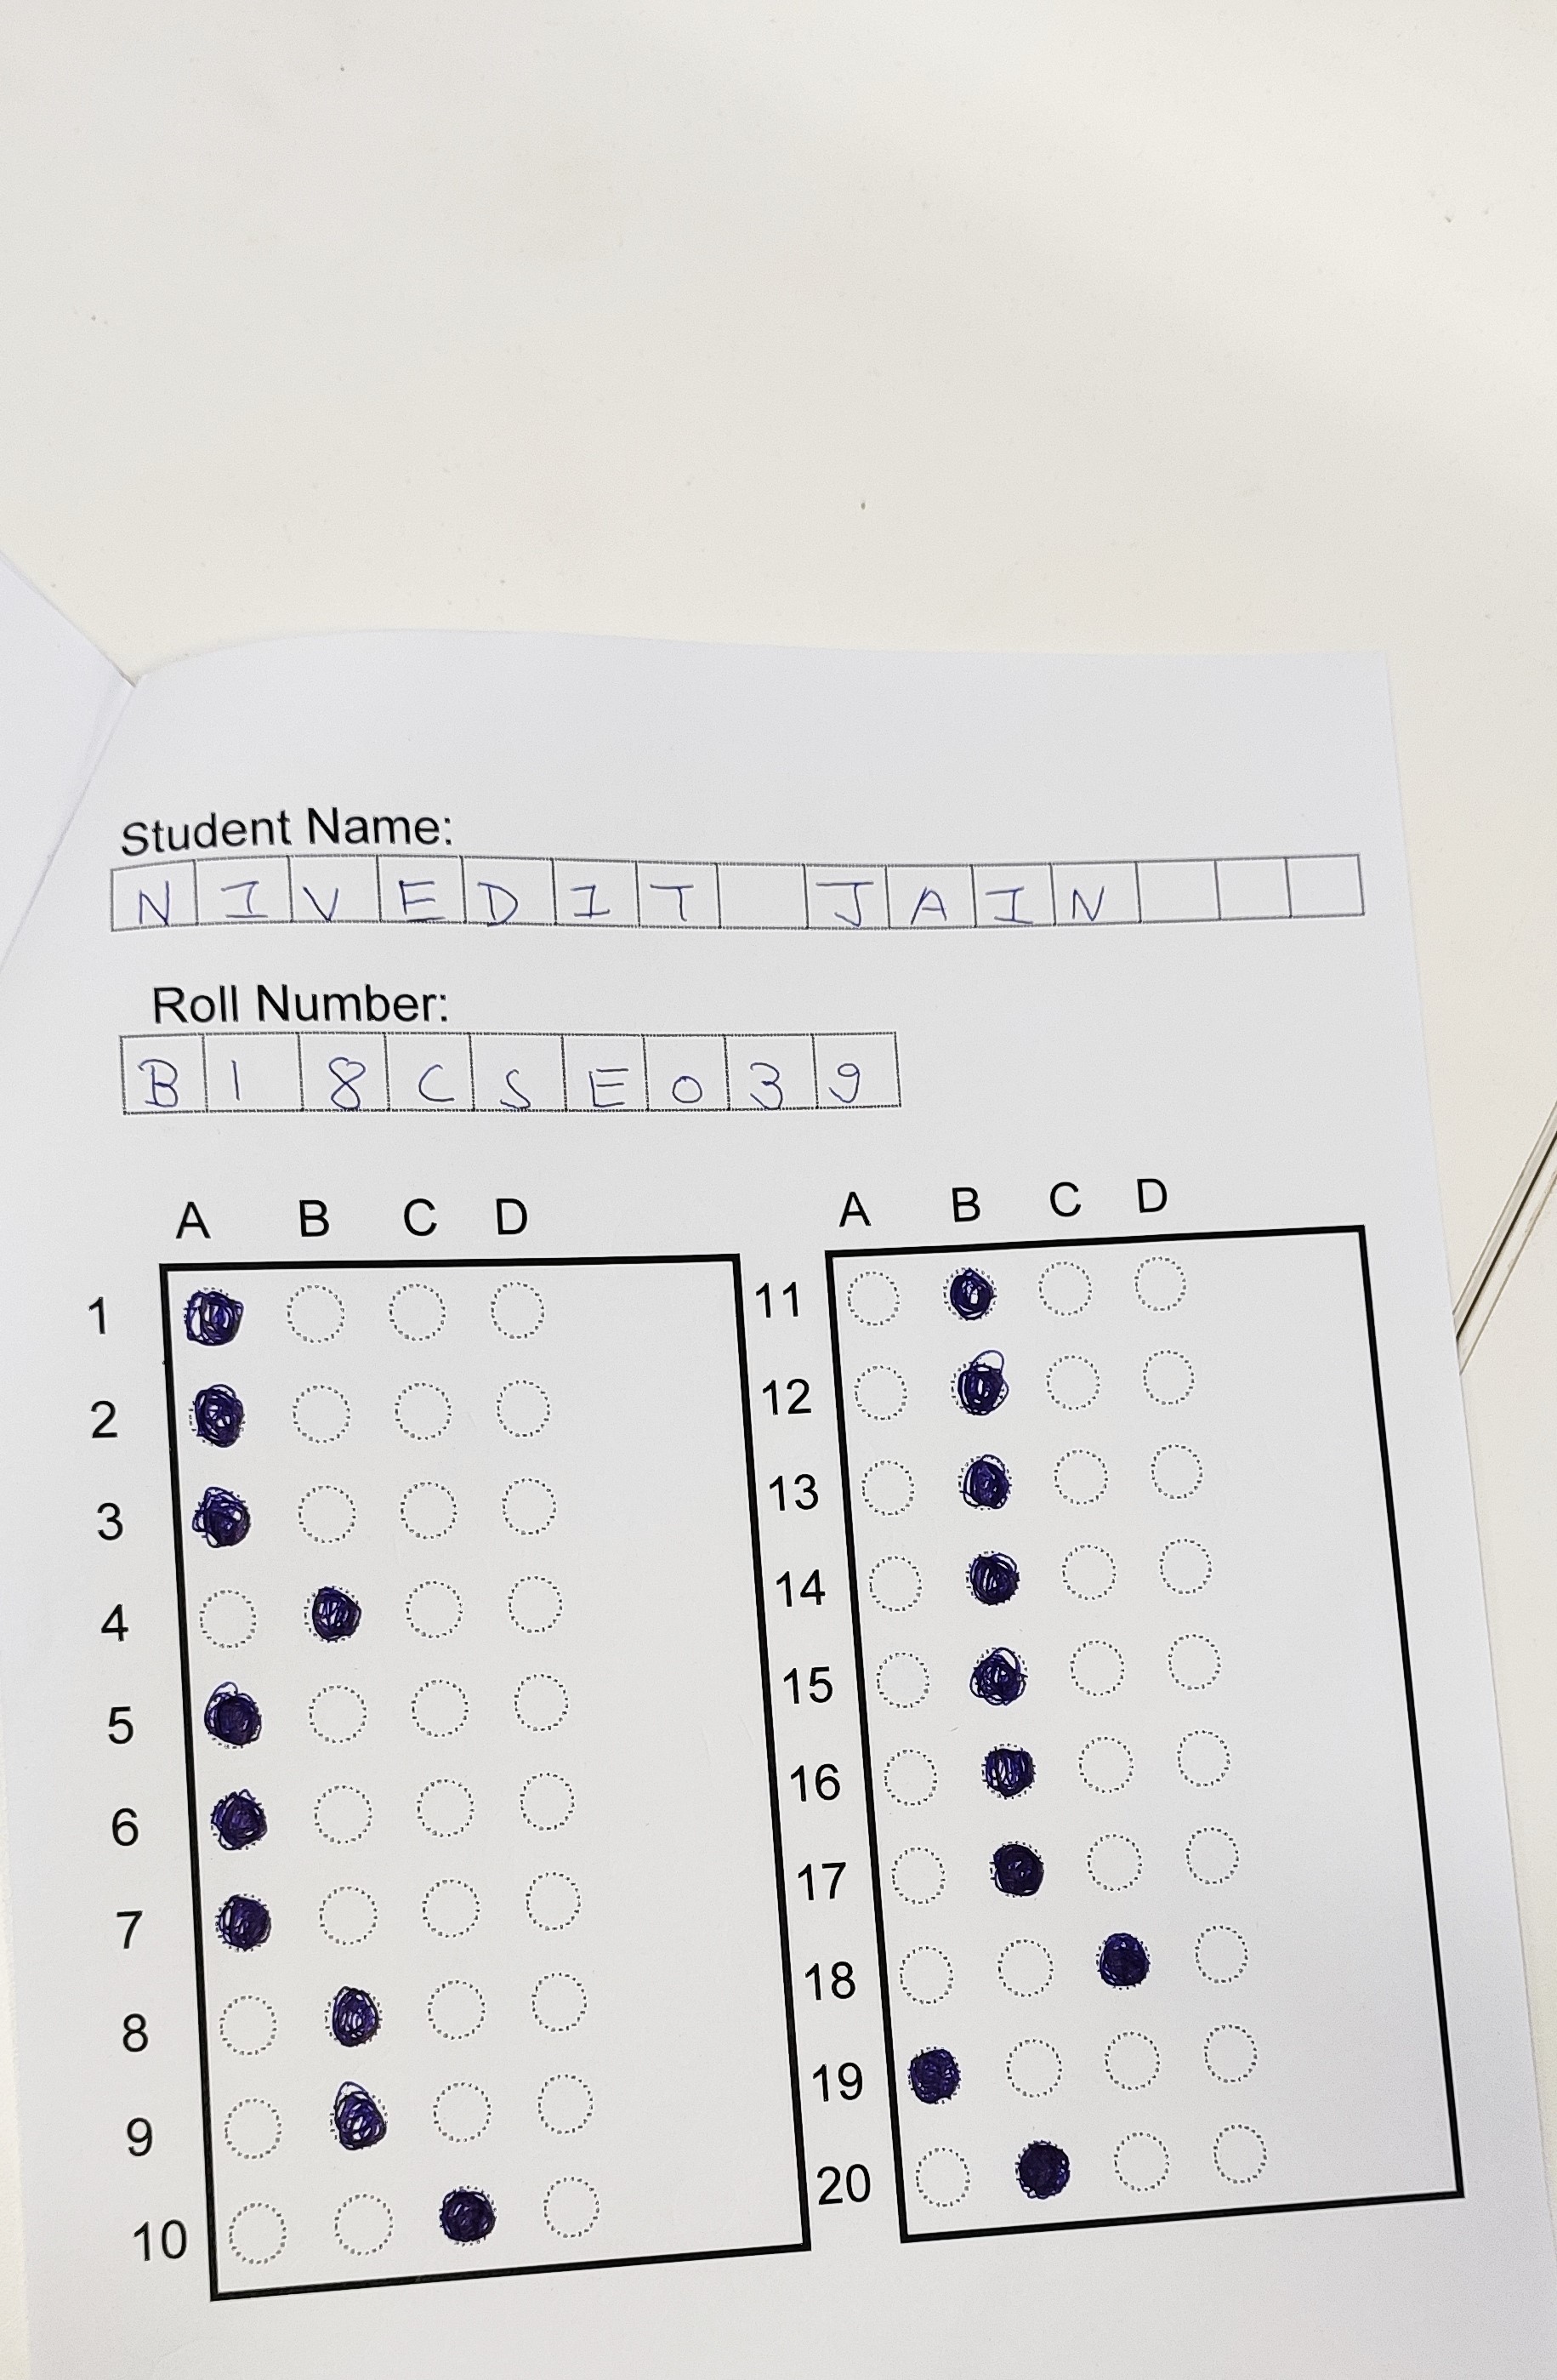 Student Name:
NIVEDIT JAIN
Roll Number:
B18CSE039
A B C D
1
2
3
4
5
6
7
8
9
10
A B C D
11
12
13
14
15
16
17
18
19
20